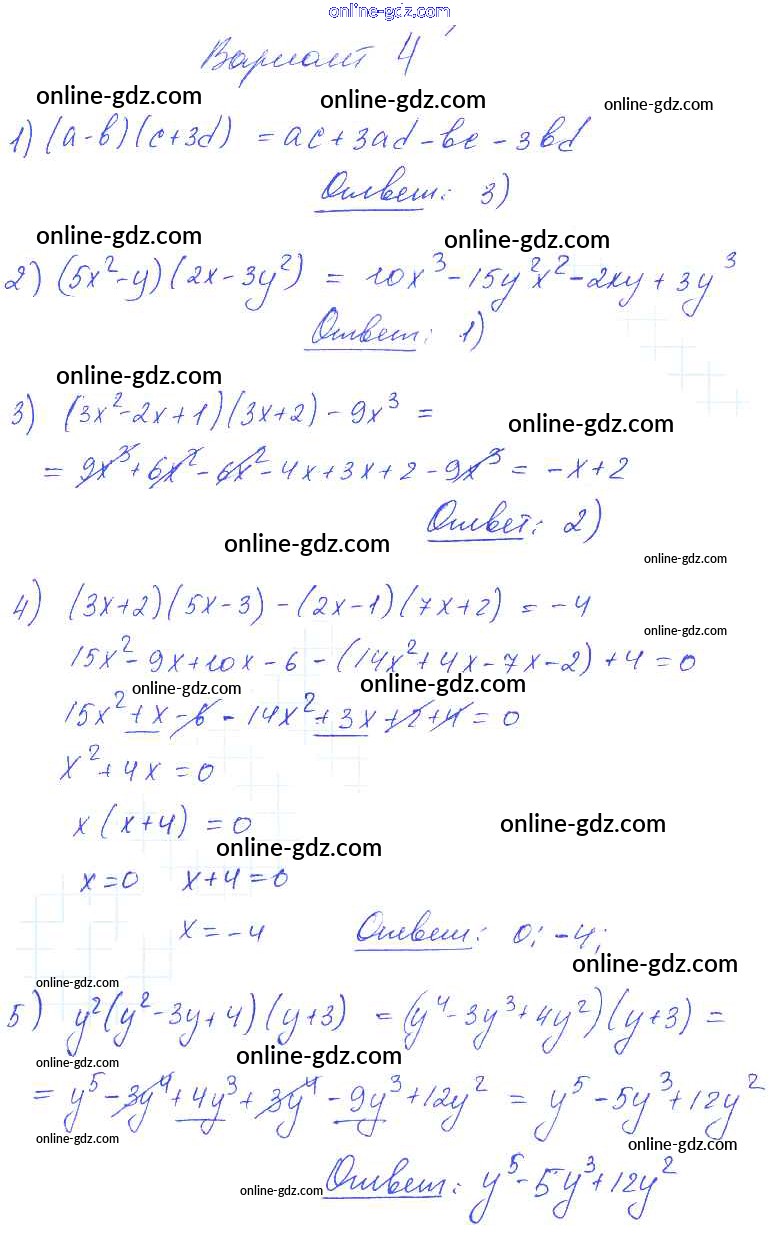 online-gdz.com
Вариант 4
online-gdz.com online-gdz.com online-gdz.com
1) (a-b)(c+3d) = ac+3ad-bc-3bd
Ответ: 3)
online-gdz.com online-gdz.com
2) (5x²-y)(2x-3y²) = 10x³-15y²x²-2xy+3y³
Ответ: 1)
online-gdz.com
3) (3x²-2x+1)(3x+2)-9x³ =
online-gdz.com
= 9x³+6x²-6x²-4x+3x+2-9x³ = -x+2
Ответ: 2)
online-gdz.com online-gdz.com
4) (3x+2)(5x-3)-(2x-1)(7x+2) = -4
online-gdz.com
15x²-9x+10x-6-(14x²+4x-7x-2)+4=0
online-gdz.com online-gdz.com
15x²+x-6-14x²+3x+2+4=0
x²+4x=0
x(x+4)=0 online-gdz.com
online-gdz.com
x=0 x+4=0
x=-4 Ответ: 0; -4;
online-gdz.com
online-gdz.com
5) y²(y²-3y+4)(y+3) = (y⁴-3y³+4y²)(y+3) =
online-gdz.com online-gdz.com
= y⁵-3y⁴+4y³+3y⁴-9y³+12y² = y⁵-5y³+12y²
online-gdz.com online-gdz.com
online-gdz.com Ответ: y⁵-5y³+12y²